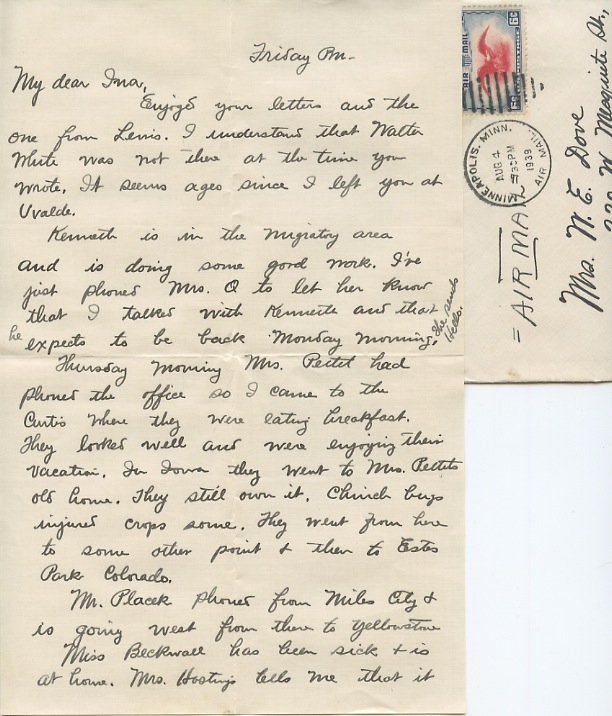 Friday Pm-
My dear Ina,
Enjoyed your letters and the
one from Lewis. I understand that Walter
White was not there at the time you
wrote. It seems ages since I left you at
Uvalde.
Kenneth is in the migratory area
and is doing some good work. I've
just phoned Mrs. O to let her know
that I talked with Kenneth and that
he expects to be back Monday morning. She sends
hello.
Thursday morning Mrs. Pettit had
phoned the office so I came to the
Curtis where they were eating breakfast.
They looked well and were enjoying their
vacation. In Iowa they went to Mrs. Pettits
old home. They still own it. Chinch bugs
injured crops some. They went from here
to some other point & then to Estes
Park Colorado.
Mr. Placek phoned from Miles City &
is going west from there to Yellowstone
Miss Beckwall has been sick & is
at home. Mrs. Hastings tells me that it
AIR MAIL
6¢
MINNEAPOLIS, MINN.
AUG 4
730PM
1939
AIR MAIL
= AIR MAIL =
Mrs. W. E. Dove
W. Mesquite St,